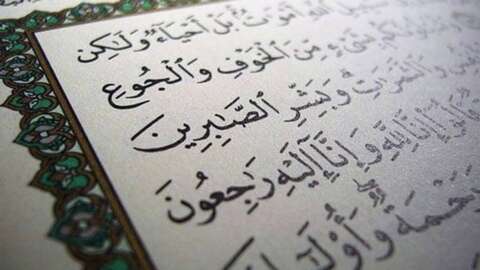 سَبِيلِ ٱللَّهِ أَمْوَٰتٌۢ بَلْ أَحْيَآءٌ وَلَٰكِن
بِشَىْءٍ مِّنَ ٱلْخَوْفِ وَٱلْجُوعِ
وَٱلثَّمَرَٰتِ وَبَشِّرِ ٱلصَّٰبِرِينَ
قَالُوٓا۟ إِنَّا لِلَّهِ وَإِنَّآ إِلَيْهِ رَٰجِعُونَ
وَرَحْمَةٌ وَأُو۟لَٰٓئِكَ